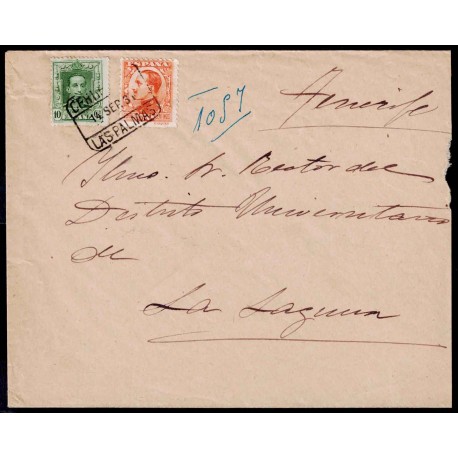 ESPAÑA
10
CERTIF
14 SEP 3
LAS PALMAS
1057
Tenerife
Ilmo. Sr. Rector del
Distrito Universitario
de
La Laguna